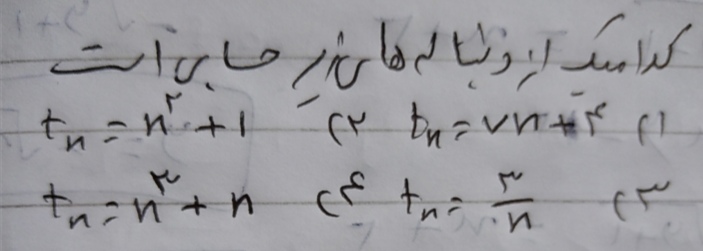 کدامیک از دنباله های زیر حسابی است
۱) tₙ = ۷n + ۴   ۲) tₙ = n² + ۱
۳) tₙ = ۳/n   ۴) tₙ = n³ + n